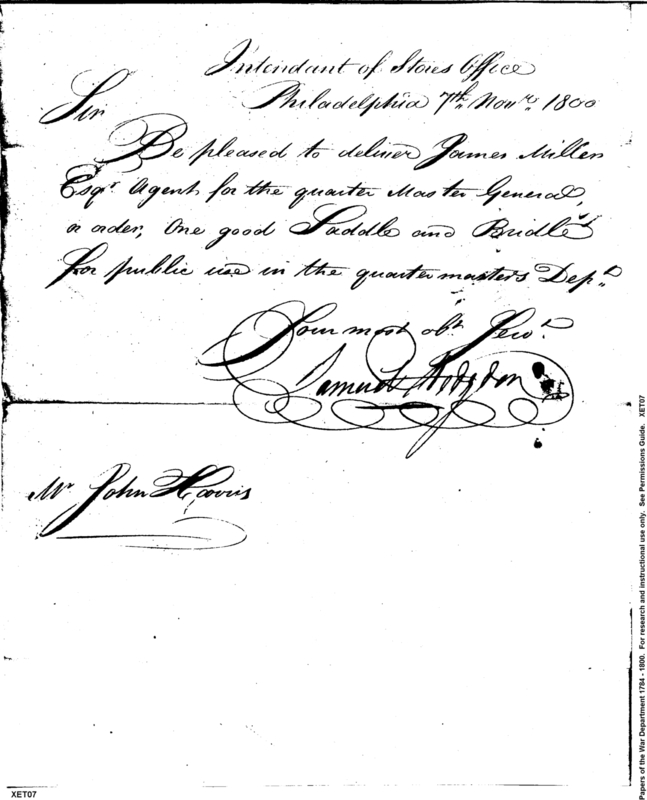 Intendant of Stores Office
Philadelphia 7th. Novr. 1800
Sir
Be pleased to deliver James Miller
Esqr. Agent for the quarter Master General,
or order, One good Saddle and Bridle
for public use in the quartermasters Dept.
Your most obt Servt.
Samuel Hodgdon
Mr John Harris
XET07
Papers of the War Department 1784 - 1800. For research and instructional use only. See Permissions Guide. XET07